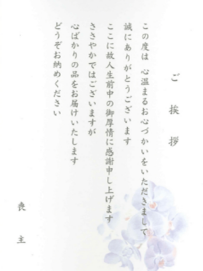 ご挨拶
この度は 心温まるお心づかいをいただきまして
誠にありがとうございます
ここに故人生前中の御厚情に感謝申し上げます
ささやかではございますが
心ばかりの品をお届けいたします
どうぞお納めください
喪主